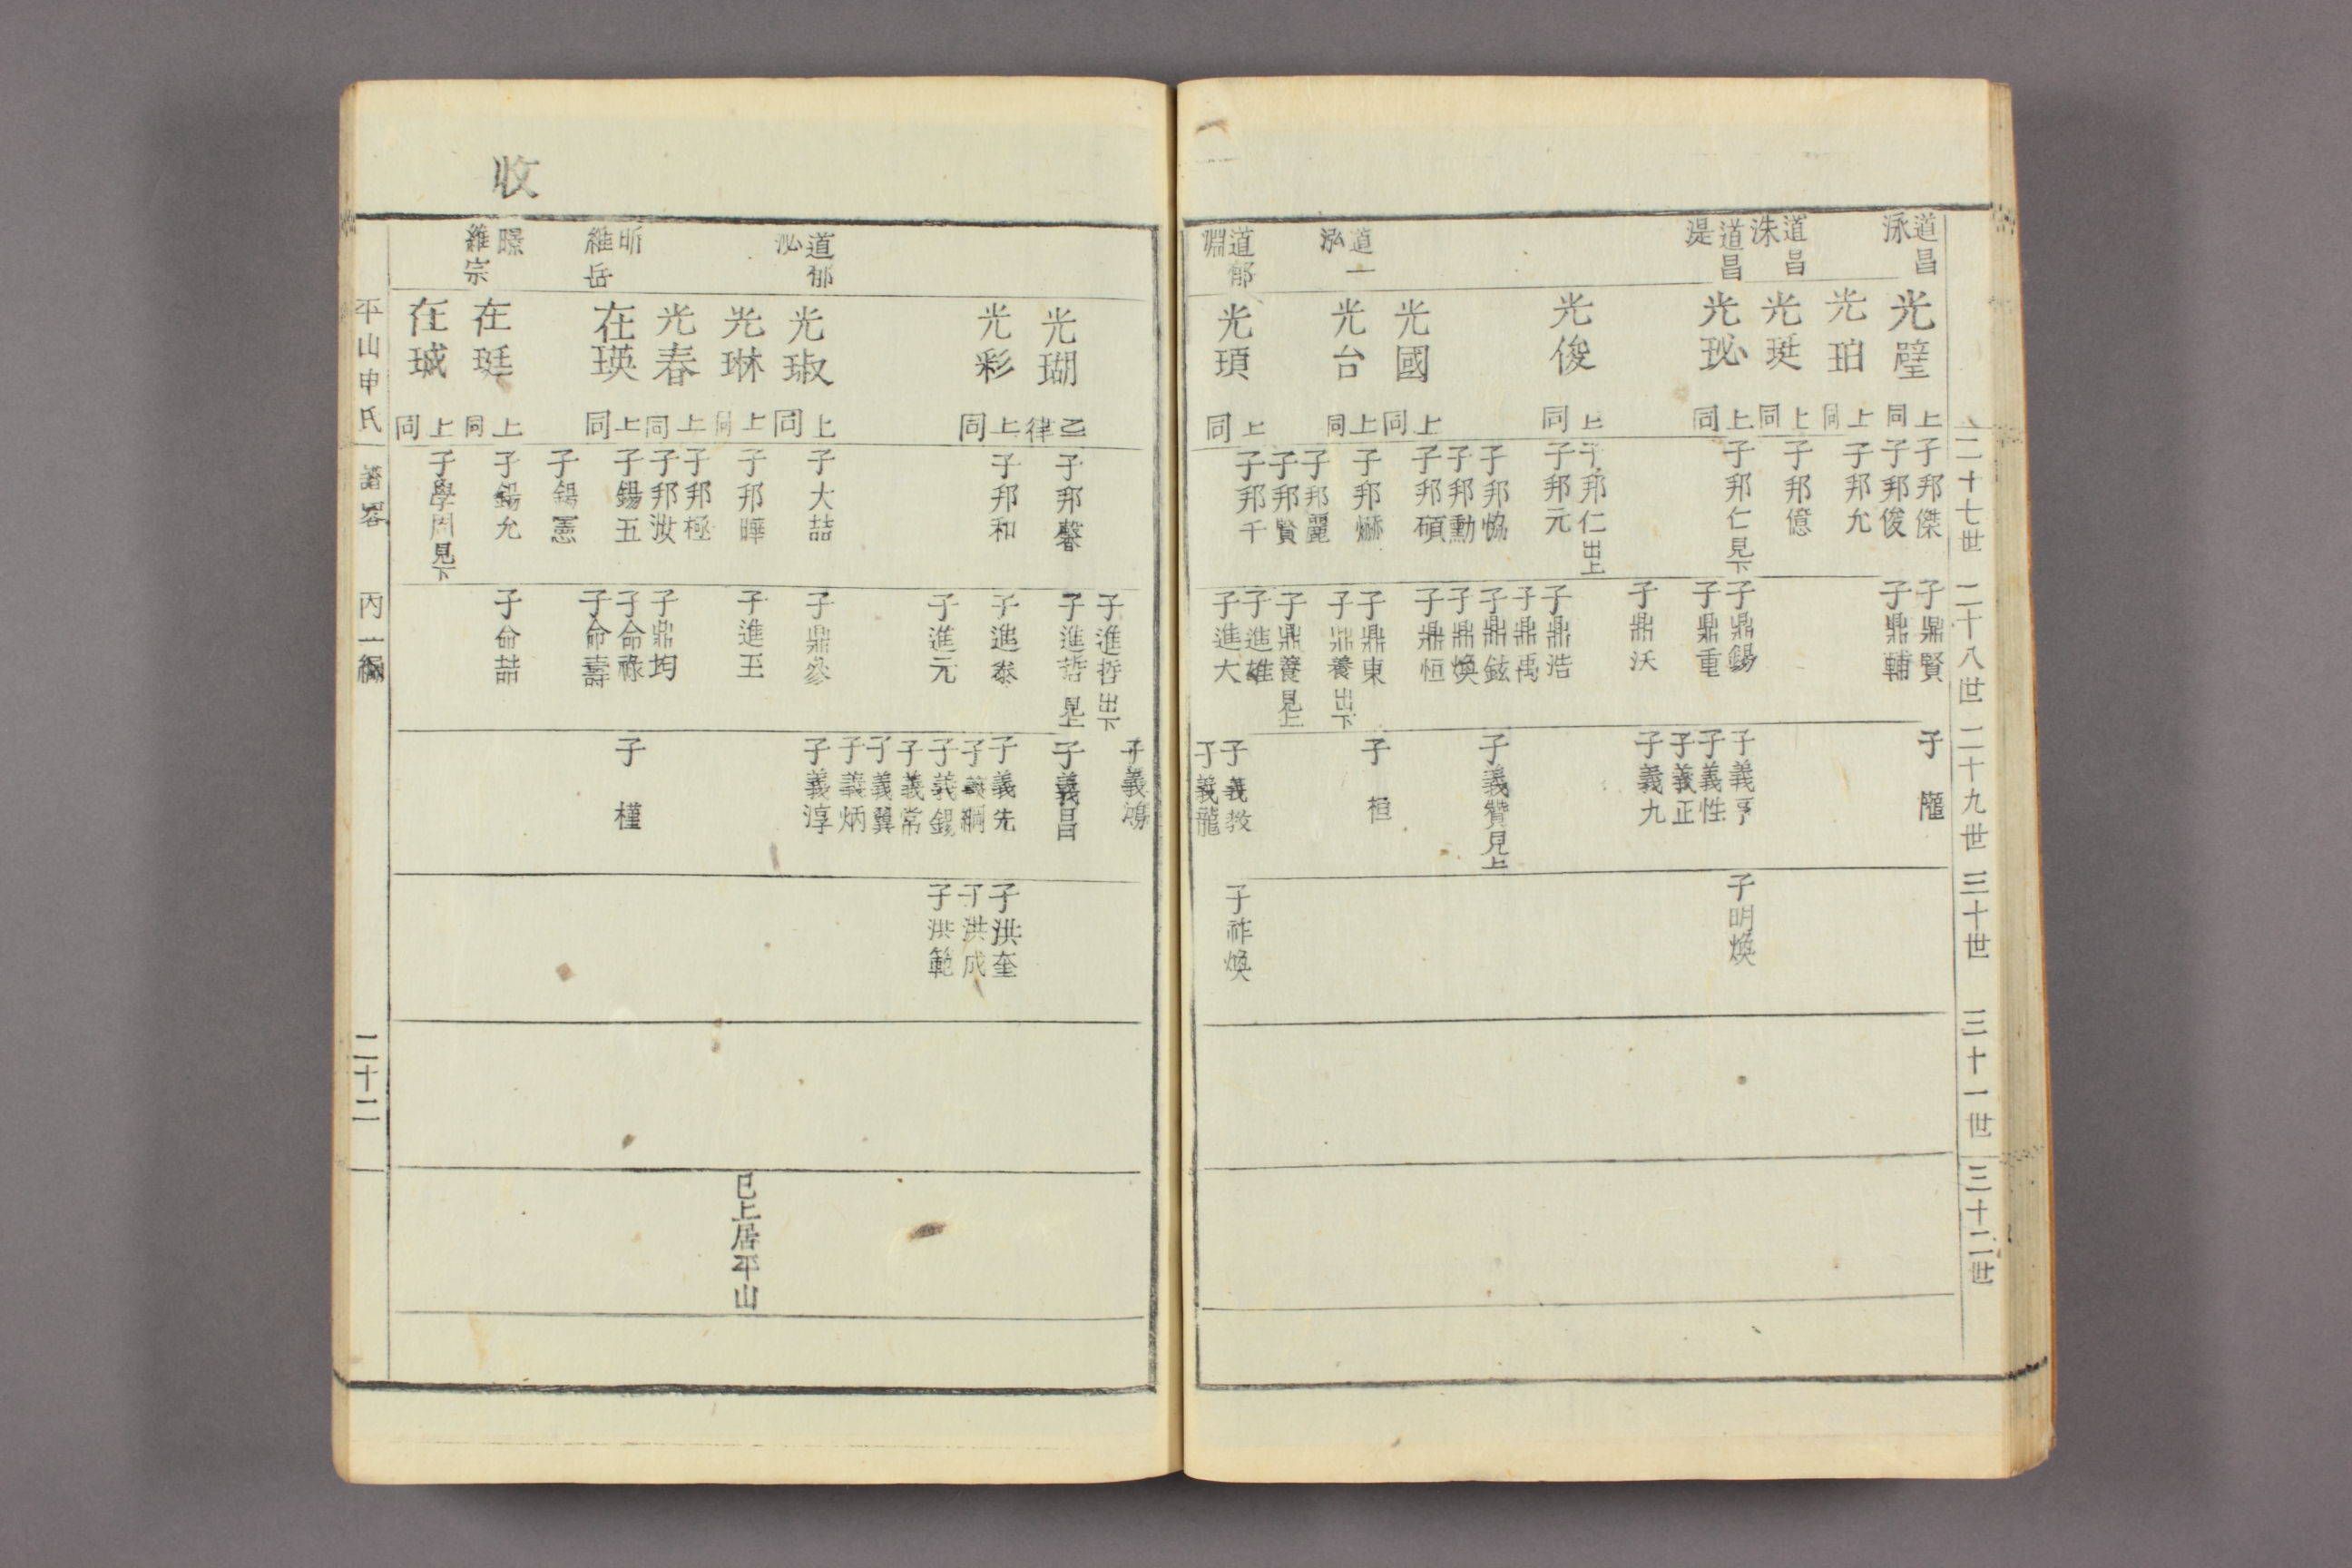 二十七世
二十八世
二十九世
三十世
三十一世
三十二世
道昌
泳
道昌
洙
道昌
湜
道一
泓
道郁
淵
光璧 上同
光珀 上同
光珽 上同
光珌 上同
光俊 上同
光國 上同
光台 上同
光頊 上同
子邦傑
子邦俊
子邦允
子邦億
子邦仁 見下
子邦仁 出上
子邦元
子邦恊
子邦勳
子邦碩
子邦爀
子邦麗
子邦賢
子邦千
子鼎賢
子鼎輔
子鼎錫
子鼎重
子鼎沃
子鼎浩
子鼎禹
子鼎鉉
子鼎煥
子鼎恒
子鼎東
子鼎養 出下
子鼎養 見上
子進雄
子進大
子
子義亨
子義性
子義正
子義九
子義贊 見上
子 桓
子義敎
子義龍
子明煥
子祚煥
收
道郁
泌
昕
維岳
暻
維宗
光瑚 乙律
光彩 上同
光琡 上同
光琳 上同
光春 上同
在瑛 上同
在珽 上同
在珹 上同
子邦馨
子邦和
子大喆
子邦曄
子邦極
子邦汝
子錫五
子錫憲
子錫允
子學周 見下
子進哲 出下
子進哲 見上
子進泰
子進元
子鼎參
子進玉
子鼎均
子命祿
子命壽
子命喆
子義鴻
子義昌
子義先
子義綱
子義錫
子義常
子義翼
子義炳
子義淳
子 槿
子洪奎
子洪成
子洪範
已上居平山
平山申氏 譜畧 丙一編 二十二